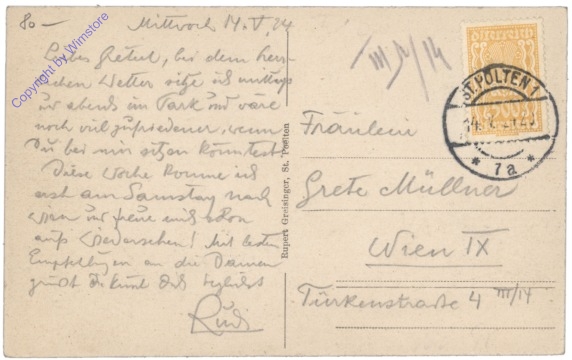 80-
Mittwoch 14.V.24
Liebes Gretul, bei dem herr-
lichen Wetter sitze ich mittags
und abends im Park und wäre
noch viel zufriedener, wenn
Du bei mir sitzen könntest.
Diese Woche komme ich
erst am Samstag nach
Wien und freue mich schon
aufs Wiedersehen! Mit besten
Empfehlungen an die Damen
grüsst Dich und
Rudi
Rupert Greisinger, St. Poelten
III/14
Österreich
ST. PÖLTEN 1
* 7a *
Fräulein
Grete Müllner
Wien IX
Türkenstrasse 4 III/14
Copyright by Wimstore